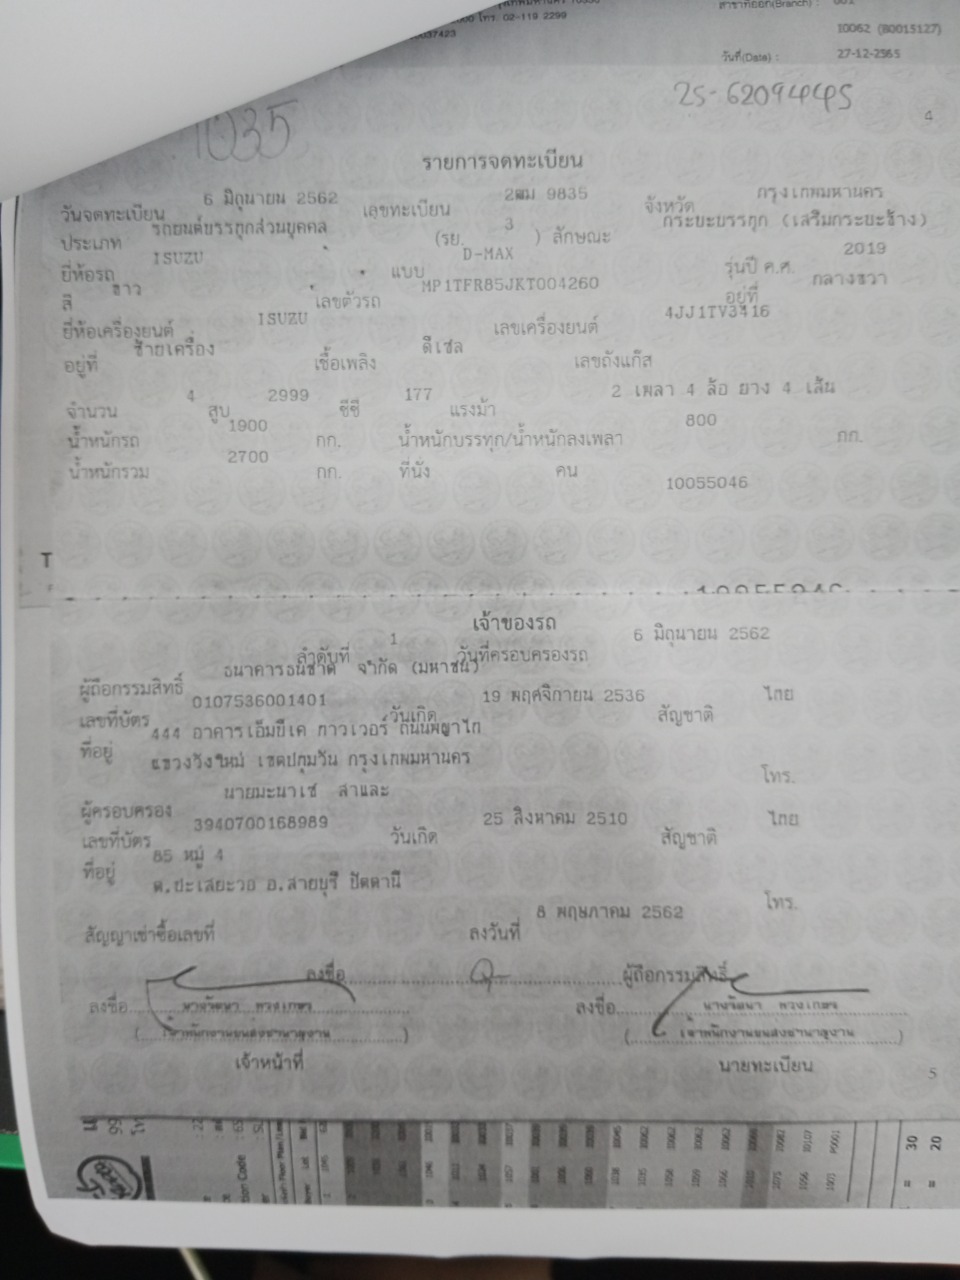 000 โทร. 02-119 2299
สาขาที่ออก(Branch) : 001
I0062 (B0015127)
วันที่(Date) : 27-12-2565
1035
25-6209445
4
รายการจดทะเบียน
วันจดทะเบียน 6 มิถุนายน 2562 เลขทะเบียน 2ฒม 9835 จังหวัด กรุงเทพมหานคร
ประเภท รถยนต์บรรทุกส่วนบุคคล (รย. 3 ) ลักษณะ กระบะบรรทุก (เสริมกระบะข้าง)
ยี่ห้อรถ ISUZU แบบ D-MAX รุ่นปี ค.ศ. 2019
สี ขาว เลขตัวรถ MP1TFR85JKT004260 อยู่ที่ กลางขวา
ยี่ห้อเครื่องยนต์ ISUZU เลขเครื่องยนต์ 4JJ1TV3416
อยู่ที่ ซ้ายเครื่อง เชื้อเพลิง ดีเซล เลขถังแก๊ส
จำนวน 4 สูบ 2999 ซีซี 177 แรงม้า 2 เพลา 4 ล้อ ยาง 4 เส้น
น้ำหนักรถ 1900 กก. น้ำหนักบรรทุก/น้ำหนักลงเพลา 800 กก.
น้ำหนักรวม 2700 กก. ที่นั่ง คน
10055046
เจ้าของรถ
ลำดับที่ 1 วันที่ครอบครองรถ 6 มิถุนายน 2562
ผู้ถือกรรมสิทธิ์ ธนาคารธนชาต จำกัด (มหาชน)
เลขที่บัตร 0107536001401 วันเกิด 19 พฤศจิกายน 2536 สัญชาติ ไทย
ที่อยู่ 444 อาคารเอ็มบีเค ทาวเวอร์ ถนนพญาไท
แขวงวังใหม่ เขตปทุมวัน กรุงเทพมหานคร
โทร.
ผู้ครอบครอง นายมะนาเซ สาและ
เลขที่บัตร 3940700168989 วันเกิด 25 สิงหาคม 2510 สัญชาติ ไทย
ที่อยู่ 85 หมู่ 4
ต.ปะเสยะวอ อ.สายบุรี ปัตตานี
โทร.
สัญญาเช่าซื้อเลขที่ ลงวันที่ 8 พฤษภาคม 2562
ลงชื่อ ผู้ถือกรรมสิทธิ์
ลงชื่อ ลงชื่อ
(เจ้าพนักงานขนส่งชำนาญงาน) (เจ้าพนักงานขนส่งชำนาญงาน)
เจ้าหน้าที่ นายทะเบียน
5